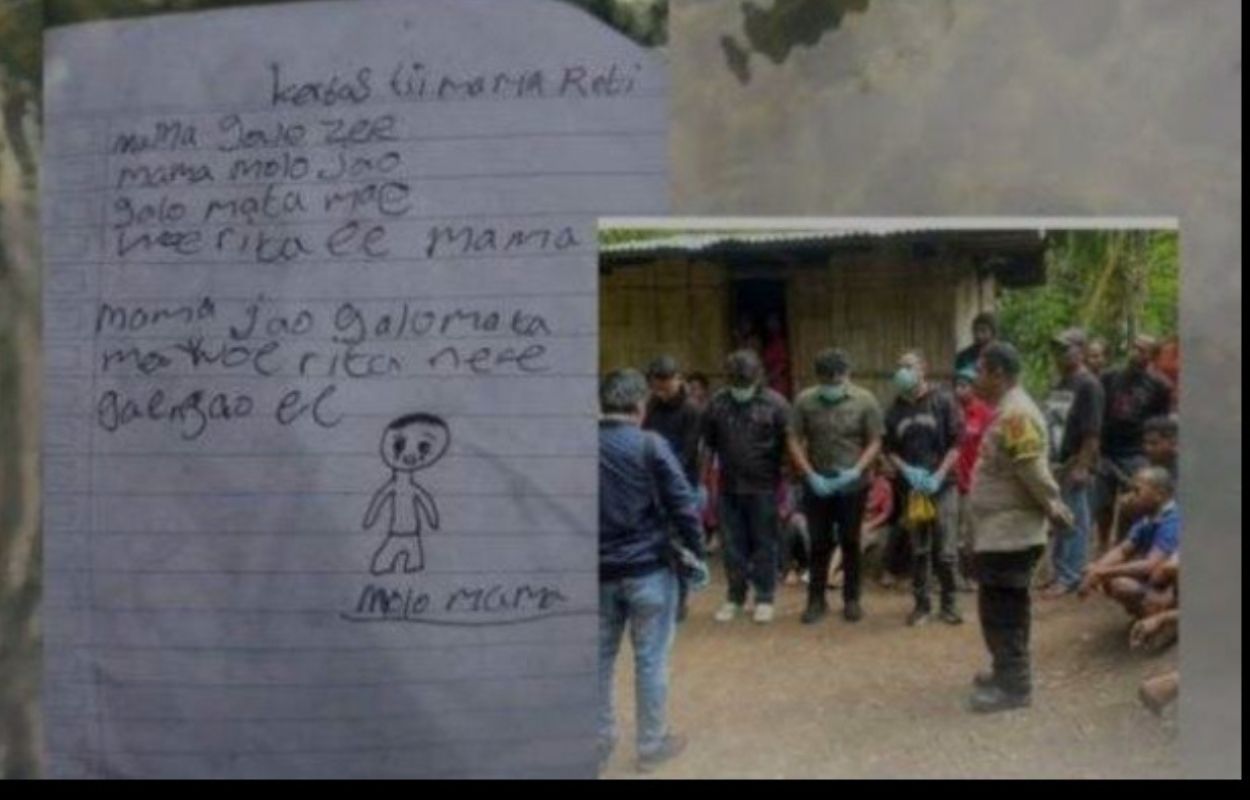 kertas Tii mama Reti
mama galo zee
mama molo Jao
galo mata mae
woe rita ee mama
mama jao galo mata
mae woe rita ne'e
gae ngao ee
molo mama